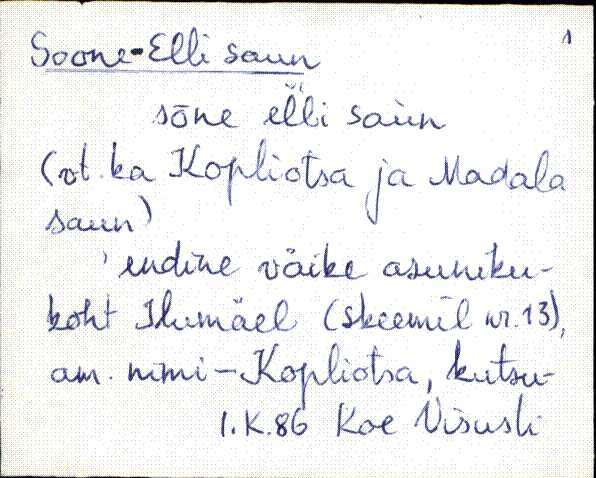 1
Soone-Elli saun
sōne elli saùn
(vt. ka Kopliotsa ja Madala
saun)
' endine väike asuniku-
koht Ilumäel (skeemil nr. 13),
am. nimi - Kopliotsa, kutsu-
I. K. 86 Koe Visusti